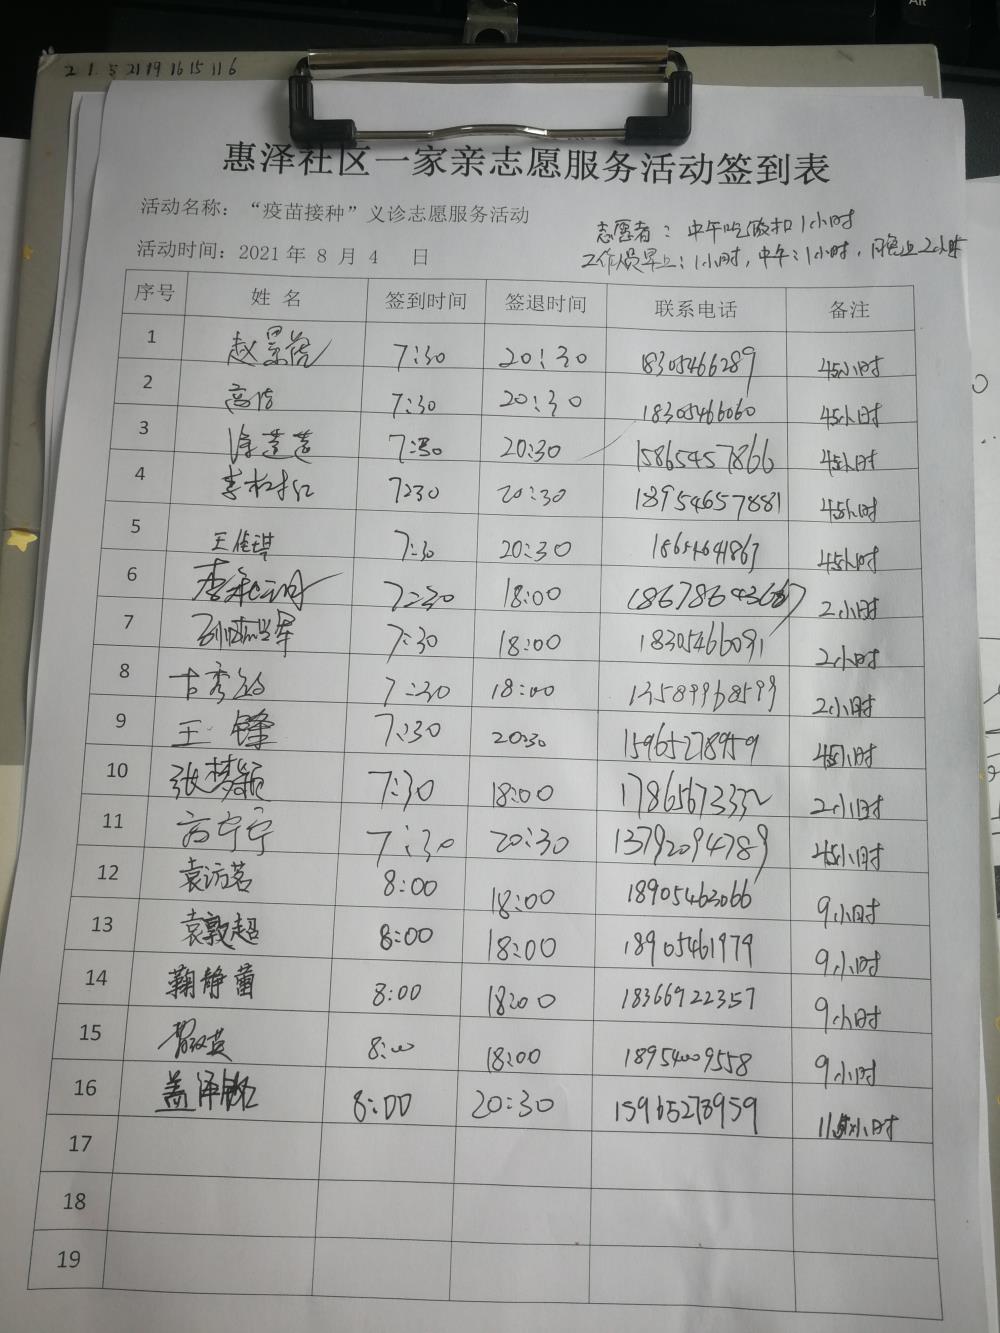 2 1 5 21 19 16 15 11 6
惠泽社区一家亲志愿服务活动签到表
活动名称：“疫苗接种”义诊志愿服务活动
志愿者：中午吃饭扣1小时
活动时间：2021年 8 月 4 日
工作人员早上：1小时，中午：1小时，
序号 姓 名 签到时间 签退时间 联系电话 备注
1 7:30 20:30 18305466289 4.5小时
2 高倩 7:30 20:30 18305466060 4.5小时
3 7:30 20:30 15865457866 4.5小时
4 7:30 20:30 18954657881 4.5小时
5 王佳琪 7:30 20:30 18654641863 4.5小时
6 7:30 18:00 2小时
7 7:30 18:00 18305466091 2小时
8 7:30 18:00 13589968599 2小时
9 王锋 7:30 20:30 15965278959 4.5小时
10 张梦颖 7:30 18:00 17865673332 2小时
11 高宁宁 7:30 20:30 13792094789 4.5小时
12 袁访茗 8:00 18:00 18905463066 9小时
13 袁敦超 8:00 18:00 18905461979 9小时
14 鞠静蕾 8:00 18:00 18366922357 9小时
15 8:00 18:00 18954009558 9小时
16 盖泽铭 8:00 20:30 15965278959 11.5小时
17
18
19